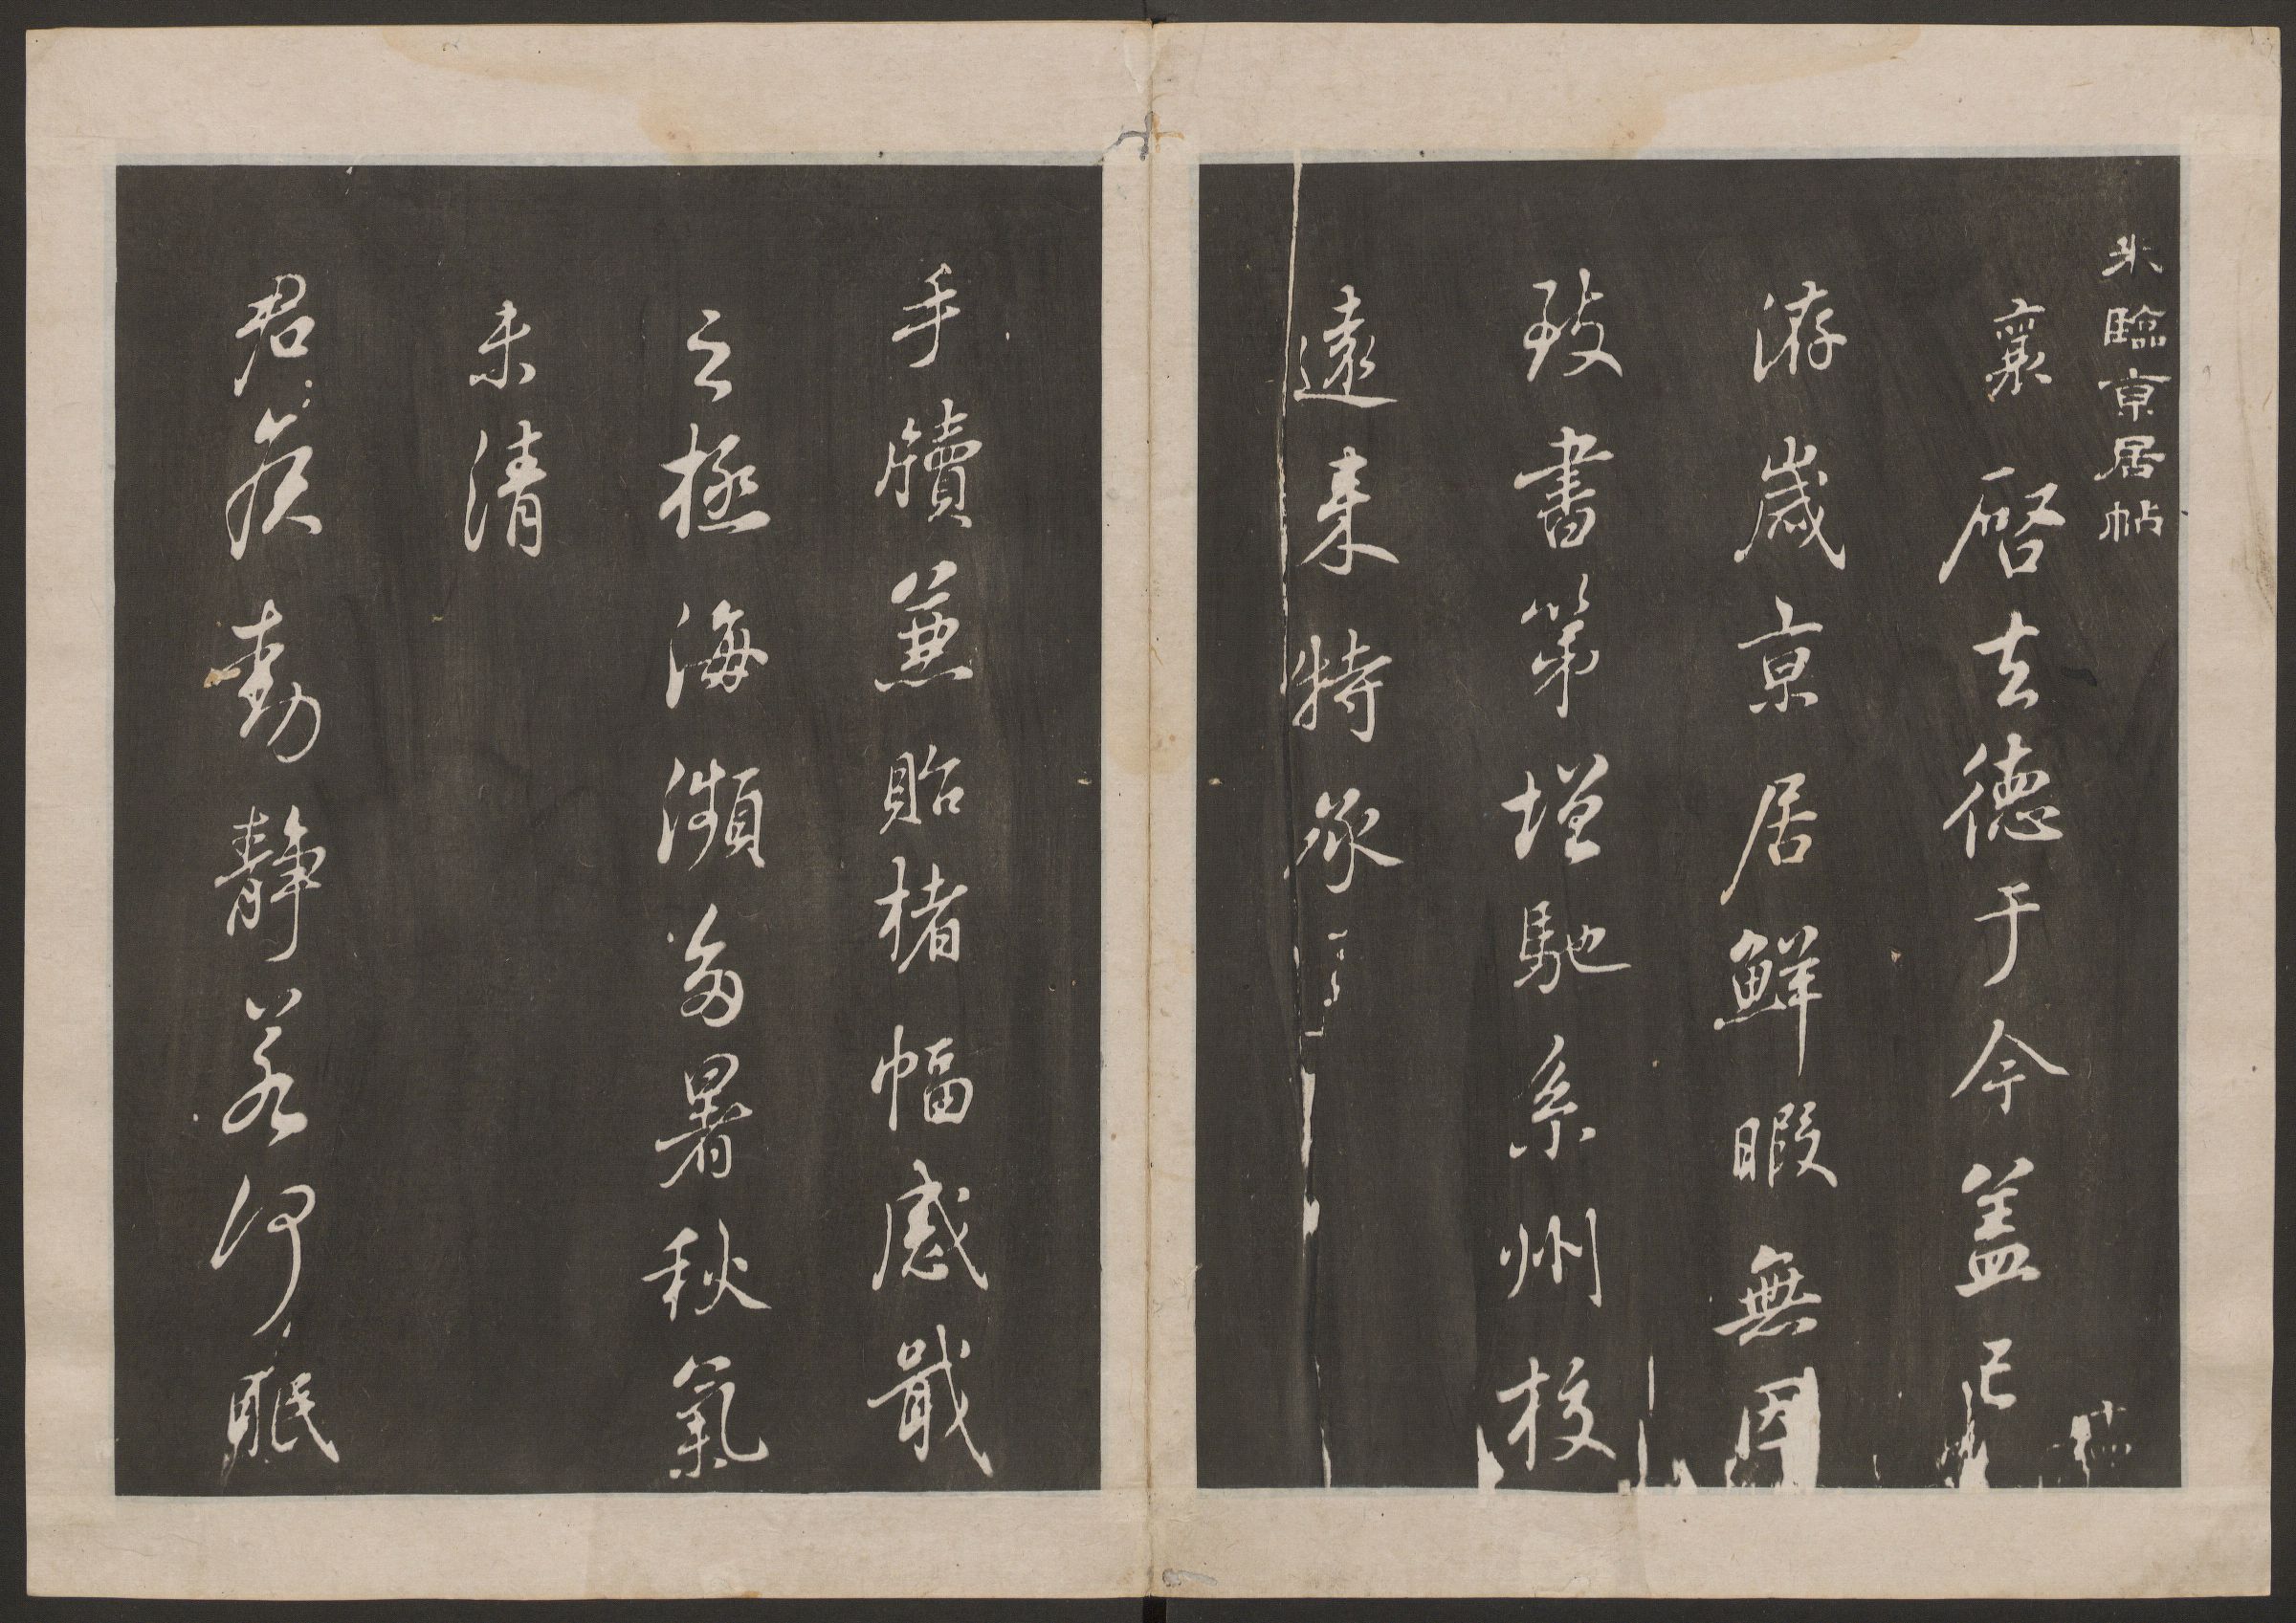 米臨京居帖
襄啓去德于今蓋已
游歲京居鮮暇無因
致書第增馳系州校
遠來特承
手牘兼貽楮幅感戢
之極海瀕多暑秋氣
未清
君侯動靜若何眠